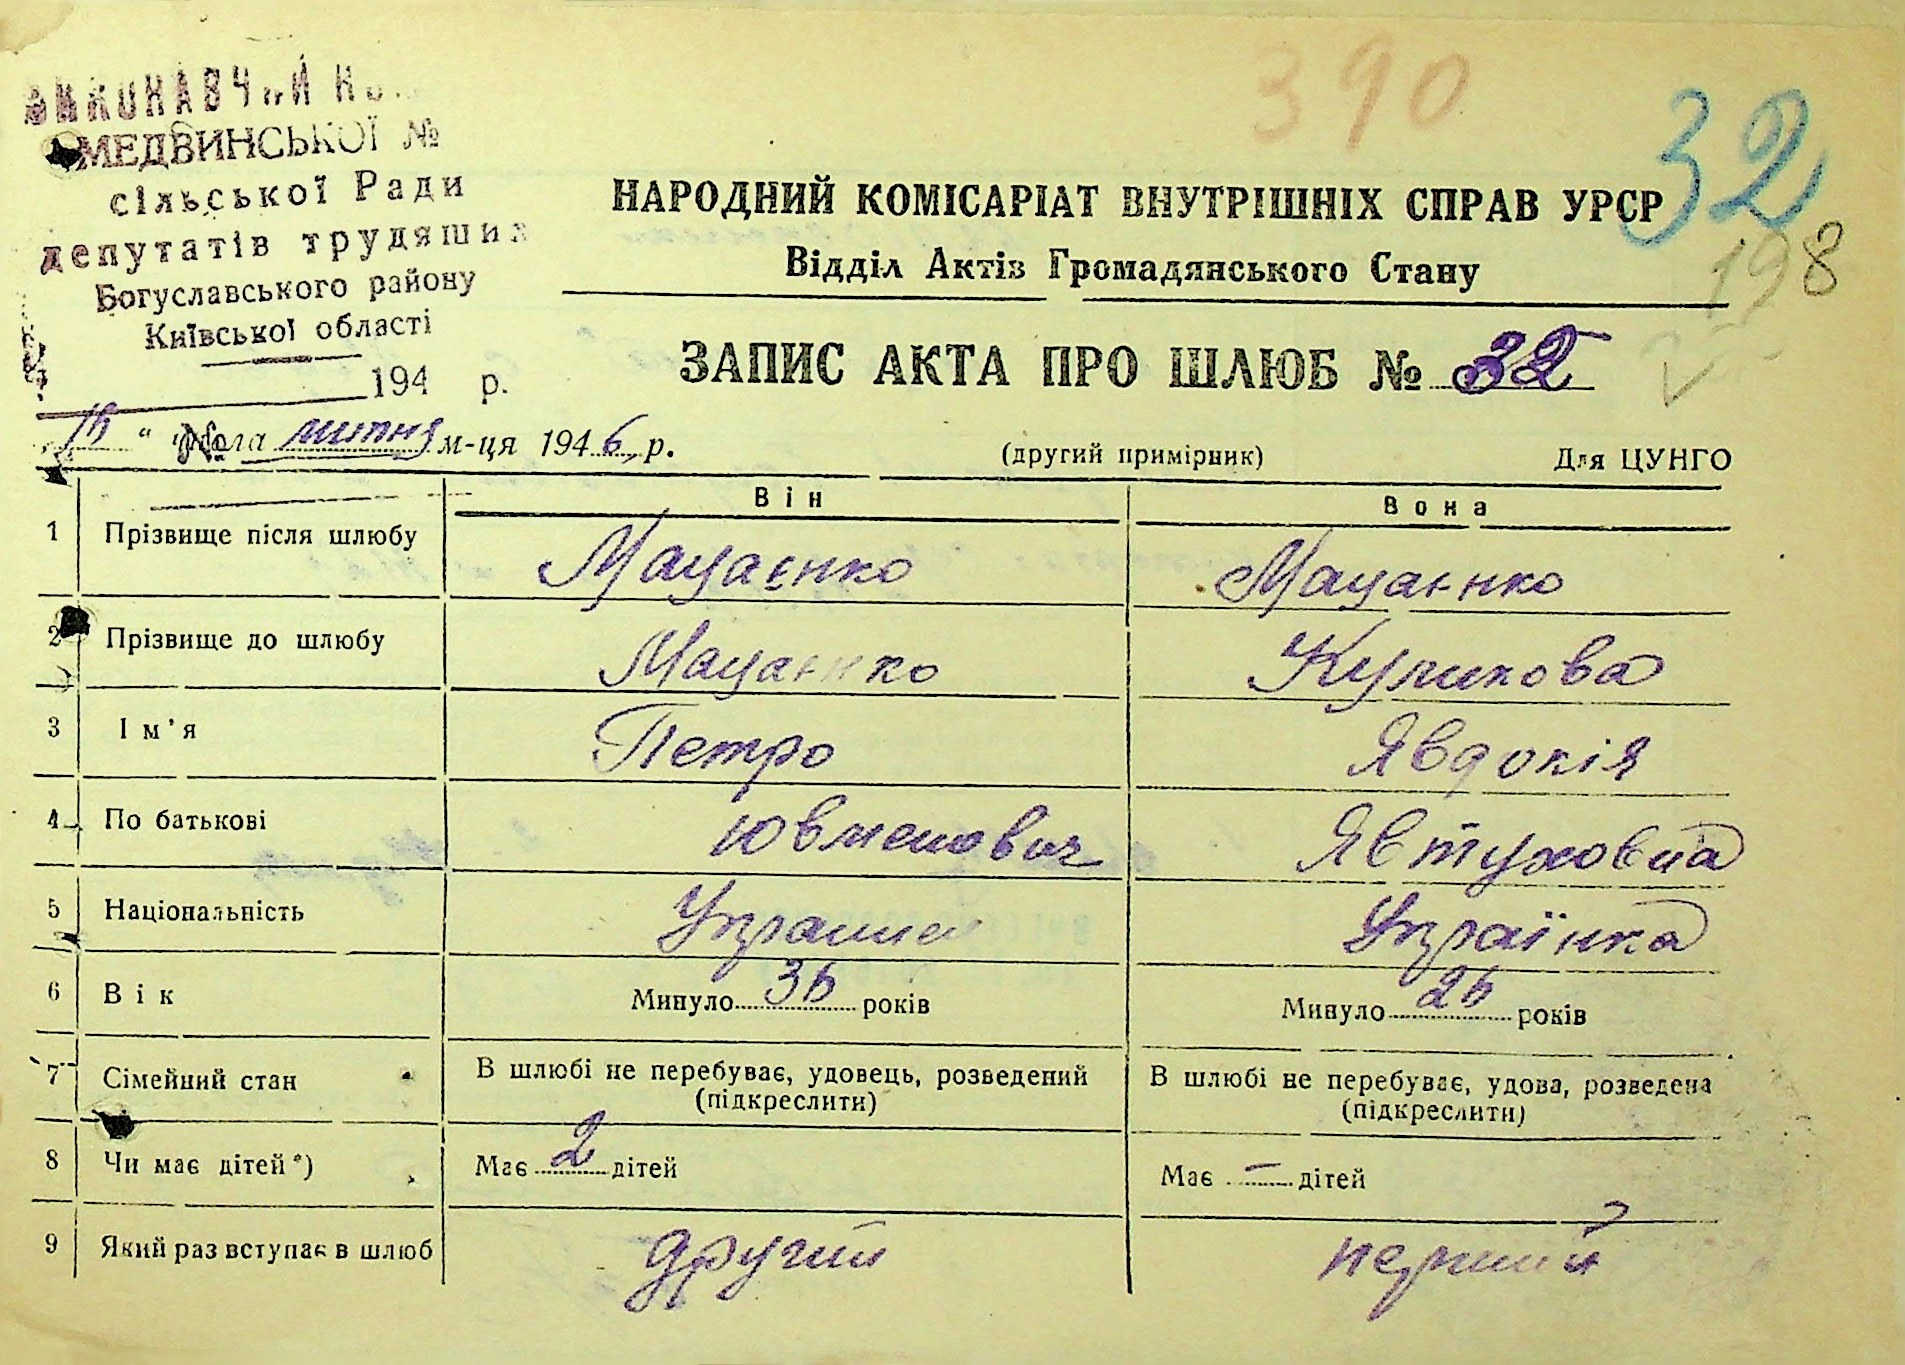 390
32
198
ВИКОНАВЧИЙ
МЕДВИНСЬКОЇ №
сільської Ради
депутатів трудящих
Богуславського району
Київської області
194 р.
НАРОДНИЙ КОМІСАРІАТ ВНУТРІШНІХ СПРАВ УРСР
Відділ Актів Громадянського Стану
ЗАПИС АКТА ПРО ШЛЮБ № 32
" числа липня м-ця 1946 р.
(другий примірник)
Для ЦУНГО
Він Вона
1 Прізвище після шлюбу Мацаєнко Мацаєнко
2 Прізвище до шлюбу Мацаєнко Куликова
3 Ім'я Петро Явдокія
4 По батькові Ювменович Явтуховна
5 Національність Украинец Українка
6 Вік Минуло 36 років Минуло 26 років
7 Сімейний стан В шлюбі не перебуває, удовець, розведений (підкреслити) В шлюбі не перебуває, удова, розведена (підкреслити)
8 Чи має дітей*) Має 2 дітей Має — дітей
9 Який раз вступає в шлюб другий перший